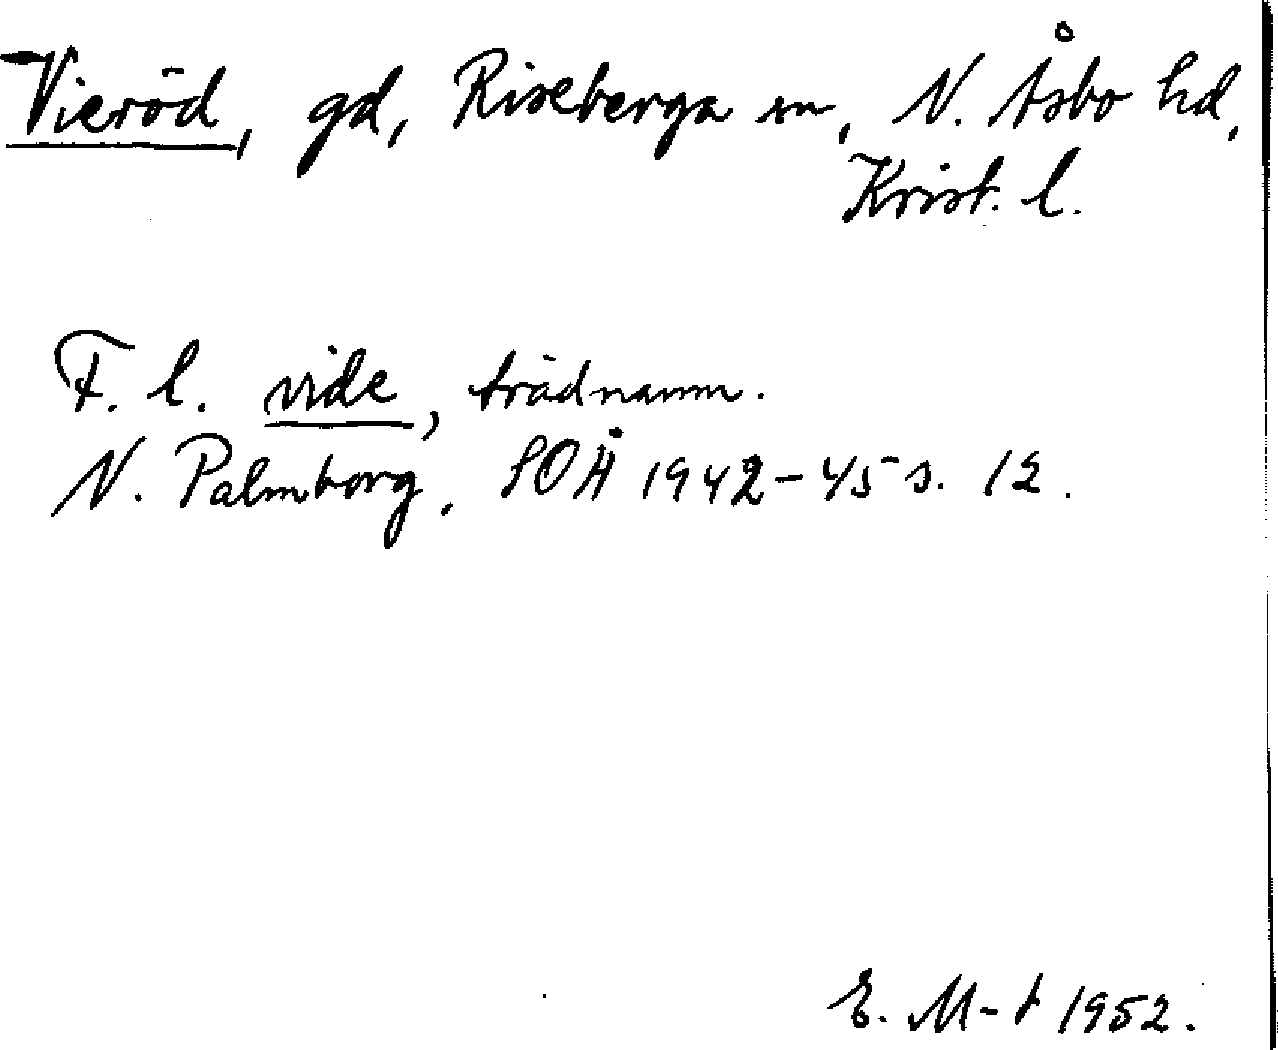 Vieröd, gd, Riseberga sn, N. Åsbo hd,
Krist. l.
F. l. vide, trädnamn.
N. Palmborg, SOÅ 1942-45 s. 12.
E. M-t 1952.